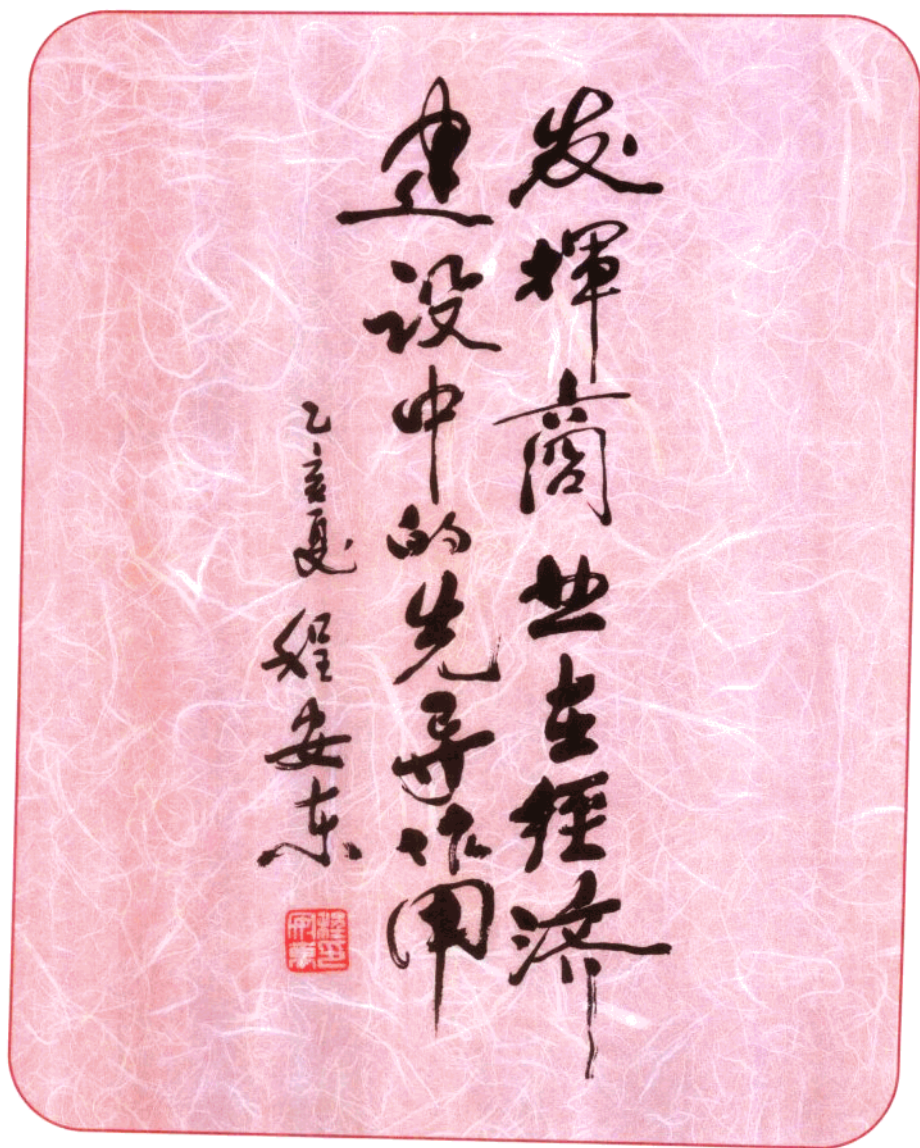 发挥商业在经济
建设中的先导作用
乙亥夏 程安东